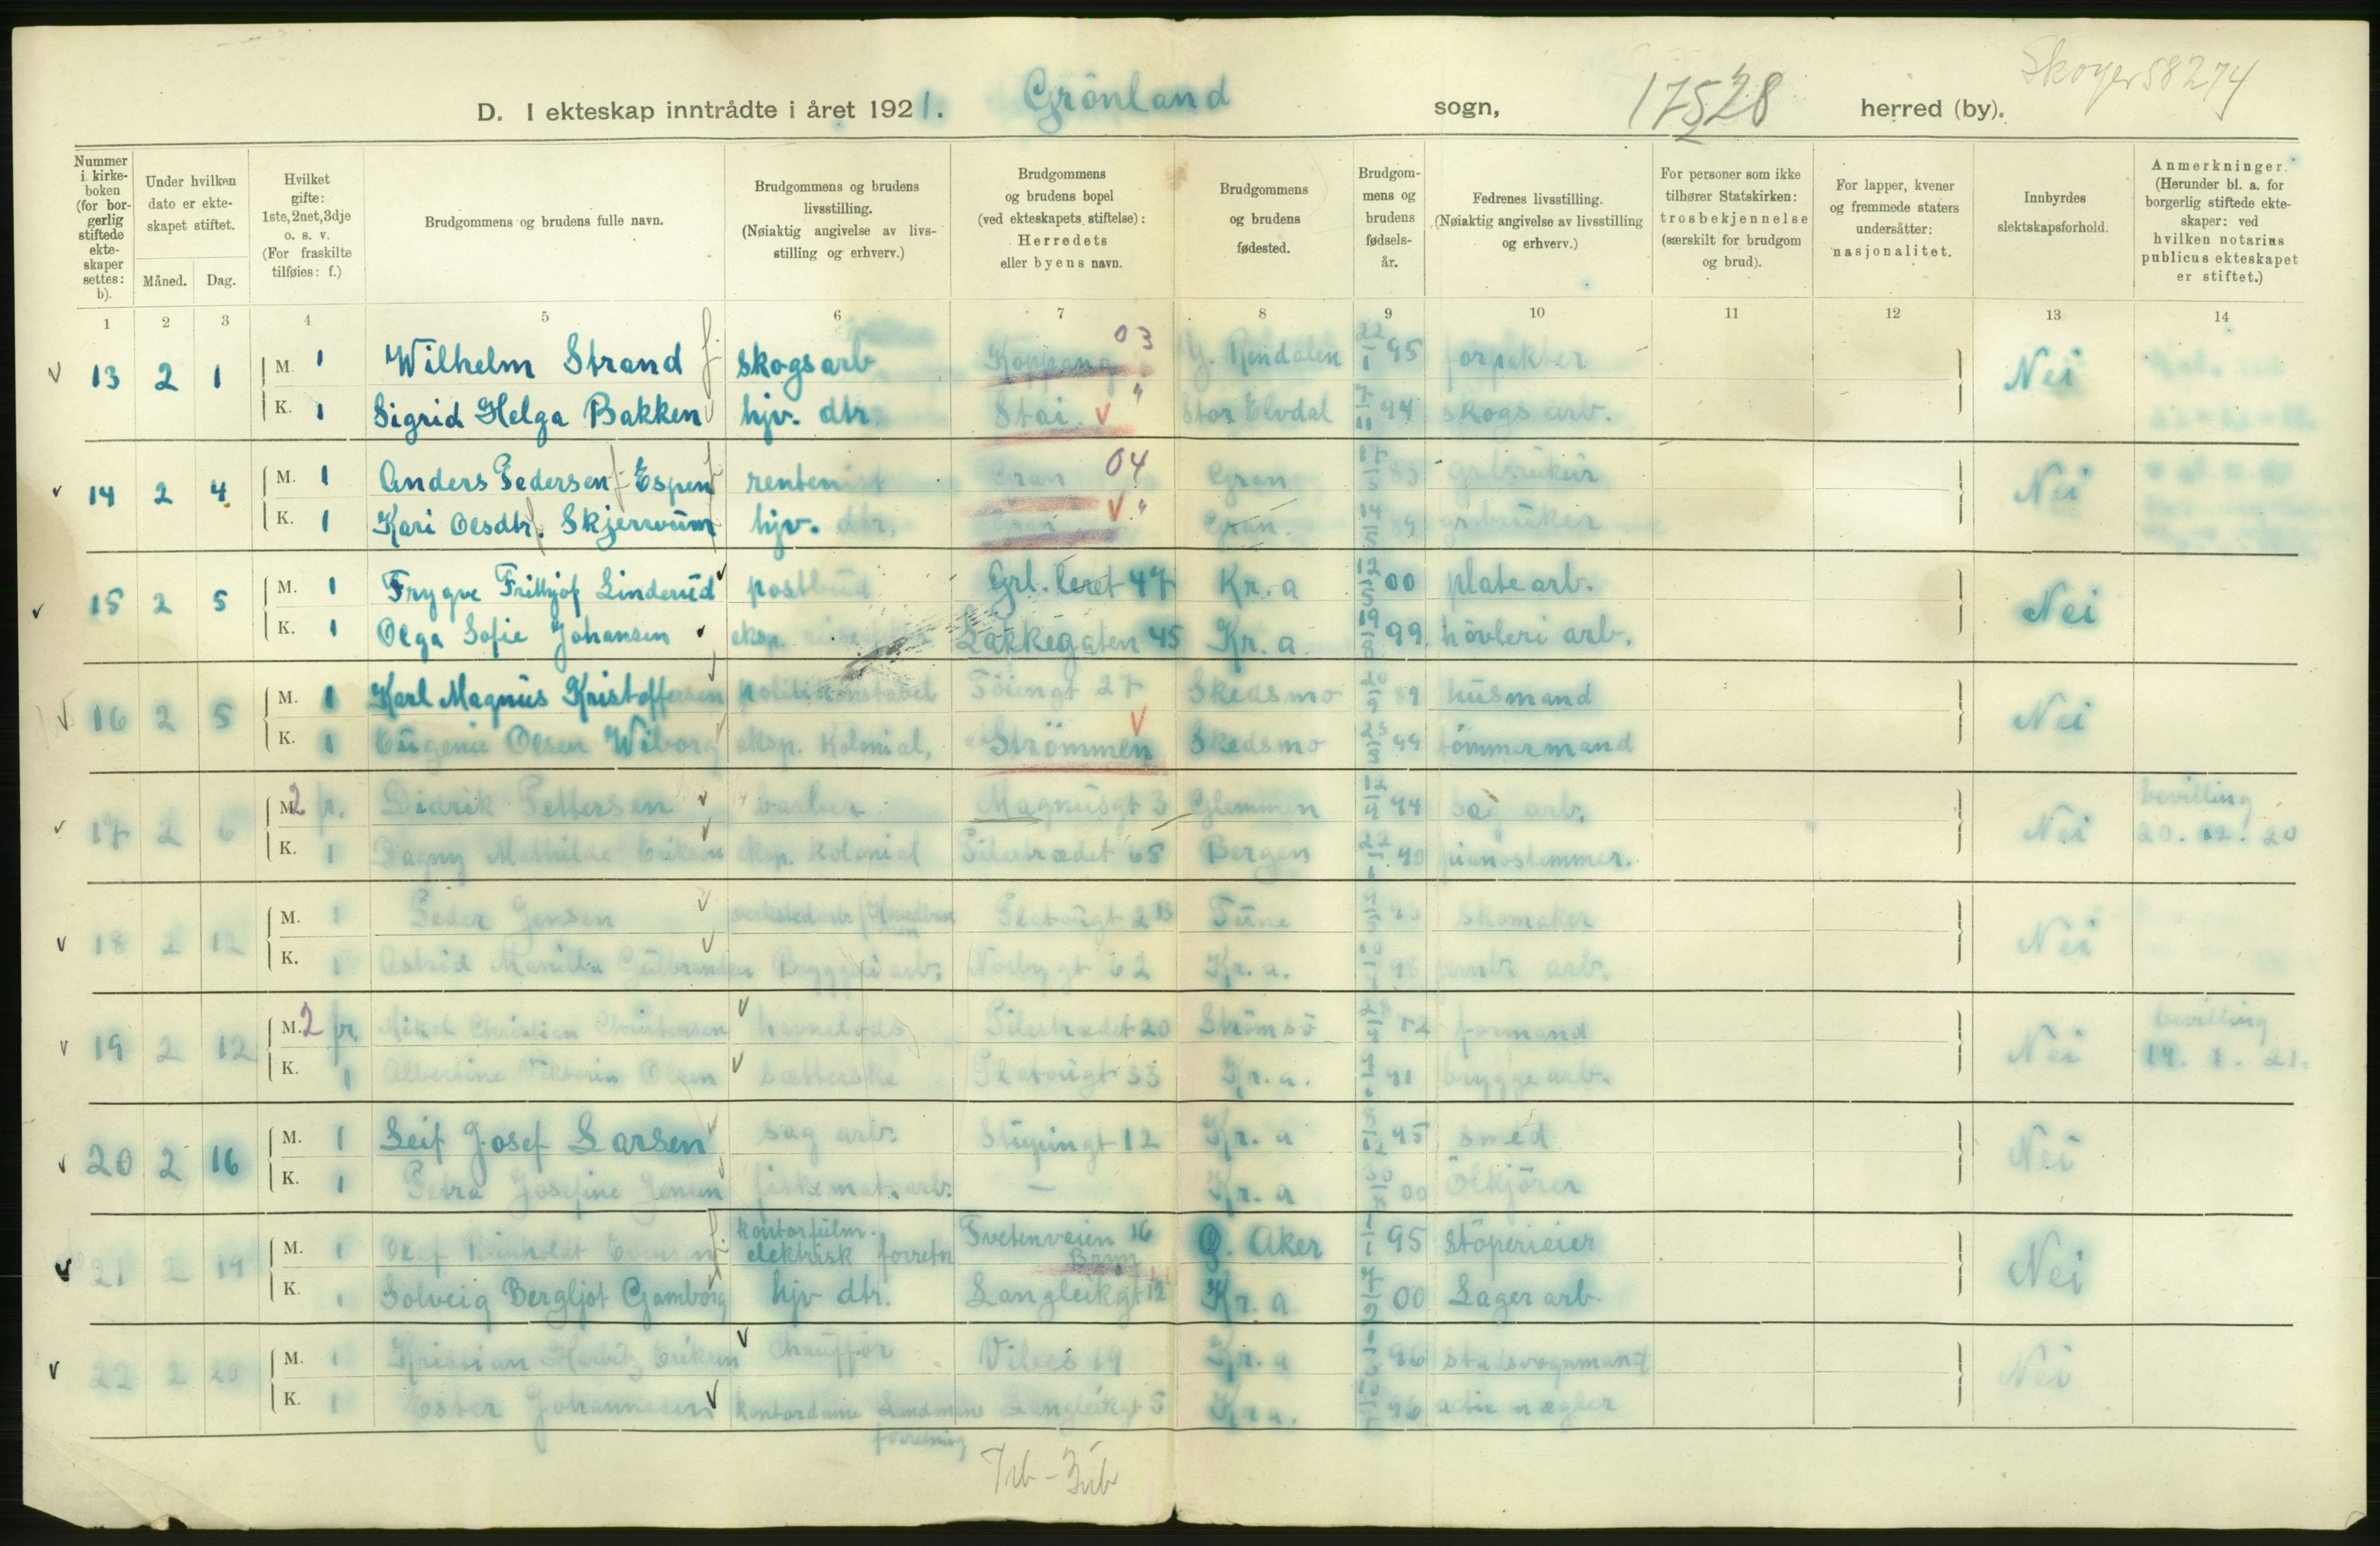 Skoger 58274
D. I ekteskap inntrådte i året 1921. Grönland sogn, 17528 herred (by).
Nummer i kirkeboken (for borgerlig stiftede ekteskaper settes: b).
Under hvilken dato er ekteskapet stiftet.
Måned. Dag.
Hvilket gifte: 1ste, 2net, 3dje o. s. v. (For fraskilte tilføies: f.)
Brudgommens og brudens fulle navn.
Brudgommens og brudens livsstilling. (Nøiaktig angivelse av livsstilling og erhverv.)
Brudgommens og brudens bopel (ved ekteskapets stiftelse): Herredets eller byens navn.
Brudgommens og brudens fødested.
Brudgommens og brudens fødselsår.
Fedrenes livsstilling. (Nøiaktig angivelse av livsstilling og erhverv.)
For personer som ikke tilhører Statskirken: trosbekjennelse (særskilt for brudgom og brud).
For lapper, kvener og fremmede staters undersåtter: nasjonalitet.
Innbyrdes slektskapsforhold.
Anmerkninger. (Herunder bl. a. for borgerlig stiftede ekteskaper: ved hvilken notarius publicus ekteskapet er stiftet.)
1 2 3 4 5 6 7 8 9 10 11 12 13 14
13 2 1 M. 1 Wilhelm Strand skogsarb Koppang 03 Y. Rendalen 22/1 95 forpakter Nei
K. 1 Sigrid Helga Bakken hjv. dtr. Stai " Stor Elvdal 94 skogs arb.
14 2 4 M. 1 Anders Pedersen Espen rentenist Gran 04 Gran 83 grbrukur Nei
K. 1 Kari Olsdtr. Skjervum hjv. dtr. Gran " Gran. 89 grbruker
15 2 5 M. 1 Trygve Frithjof Linderud postbud Grl. leret 47 Kr. a 12/5 00 plate arb. Nei
K. 1 Olga Sofie Johansen eksp. Lakkegaten 45 Kr. a 99 hövleri arb.
16 2 5 M. 1 Karl Magnus Kristoffersen politikonstabel Töiengt 27 Skedsmo 89 husmand Nei
K. 1 Eugenie Olsen Wiborg eksp. Kolonial, Strömmen Skedsmo 99 tömmermand
17 2 6 M. 2 fr. Didrik Pettersen barber Magnusgt 3 Glemmen 94 sag arb. Nei bevilling
K. 1 Dagny Mathilde Eriksen eksp. Kolonial Pilestrædet 65 Bergen 90 pianostemmer. 20. 12. 20
18 2 12 M. 1 Peder Jensen verkstedarb (Hovedban Platougt 2B Tune skomaker Nei
K. 1 Astrid Manilla Gulbrandsen Bryggeriarb. Norbygt 62 Kr. a. arb.
19 2 12 M. 2 fr. Mikal Christian Christensen havnelods Pilestrædet 20 Strömsö 82 formand Nei bevilling
K. 1 Albertine Viktoria Olsen sætterske Platougt 33 Kr. a. 91 brygge arb. 19. 1. 21.
20 2 16 M. 1 Leif Josef Larsen sag arb. Stupingt 12 Kr. a 95 smed Nei
K. 1 Petra Josefine Jensen fiskemat. arb. — Kr. a 00 Ölkjörer
21 2 19 M. 1 Olaf Reinholdt Evensen kontorfulm. elektrisk forretn Tvetenveien 16 Bryn Ö. Aker 95 Stöperieier Nei
K. 1 Solveig Bergljot Gamborg hjv dtr. Langleikgt 12 Kr. a 00 Lager arb.
22 2 20 M. 1 Kristian Eriksen Chaufför Vibes 19 Kr. a 96 Stadsvognmand Nei
K. 1 Ester Johannesen kontordame Landmans forretning Langleikgt 5 Kr a. 96